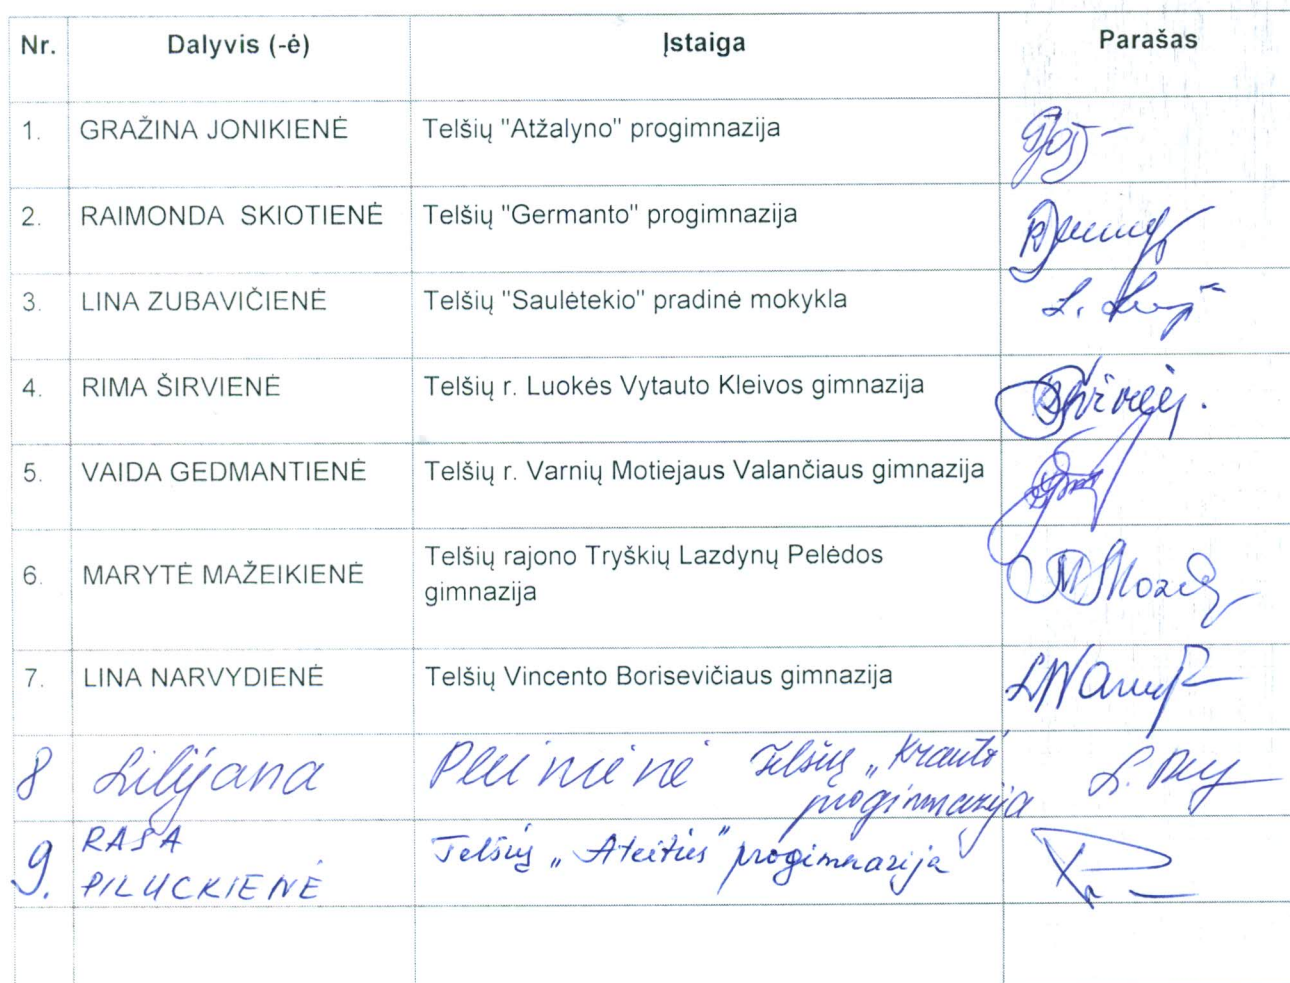 Nr. Dalyvis (-ė) Įstaiga Parašas
1. GRAŽINA JONIKIENĖ Telšių "Atžalyno" progimnazija
2. RAIMONDA SKIOTIENĖ Telšių "Germanto" progimnazija
3. LINA ZUBAVIČIENĖ Telšių "Saulėtekio" pradinė mokykla L.
4. RIMA ŠIRVIENĖ Telšių r. Luokės Vytauto Kleivos gimnazija
5. VAIDA GEDMANTIENĖ Telšių r. Varnių Motiejaus Valančiaus gimnazija
6. MARYTĖ MAŽEIKIENĖ Telšių rajono Tryškių Lazdynų Pelėdos
gimnazija
7. LINA NARVYDIENĖ Telšių Vincento Borisevičiaus gimnazija
8 Lilijana Pleinienė Telšių „Kranto" L.
progimnazija
9. RASA Telšių „Ateities" progimnazija
PILUCKIENĖ